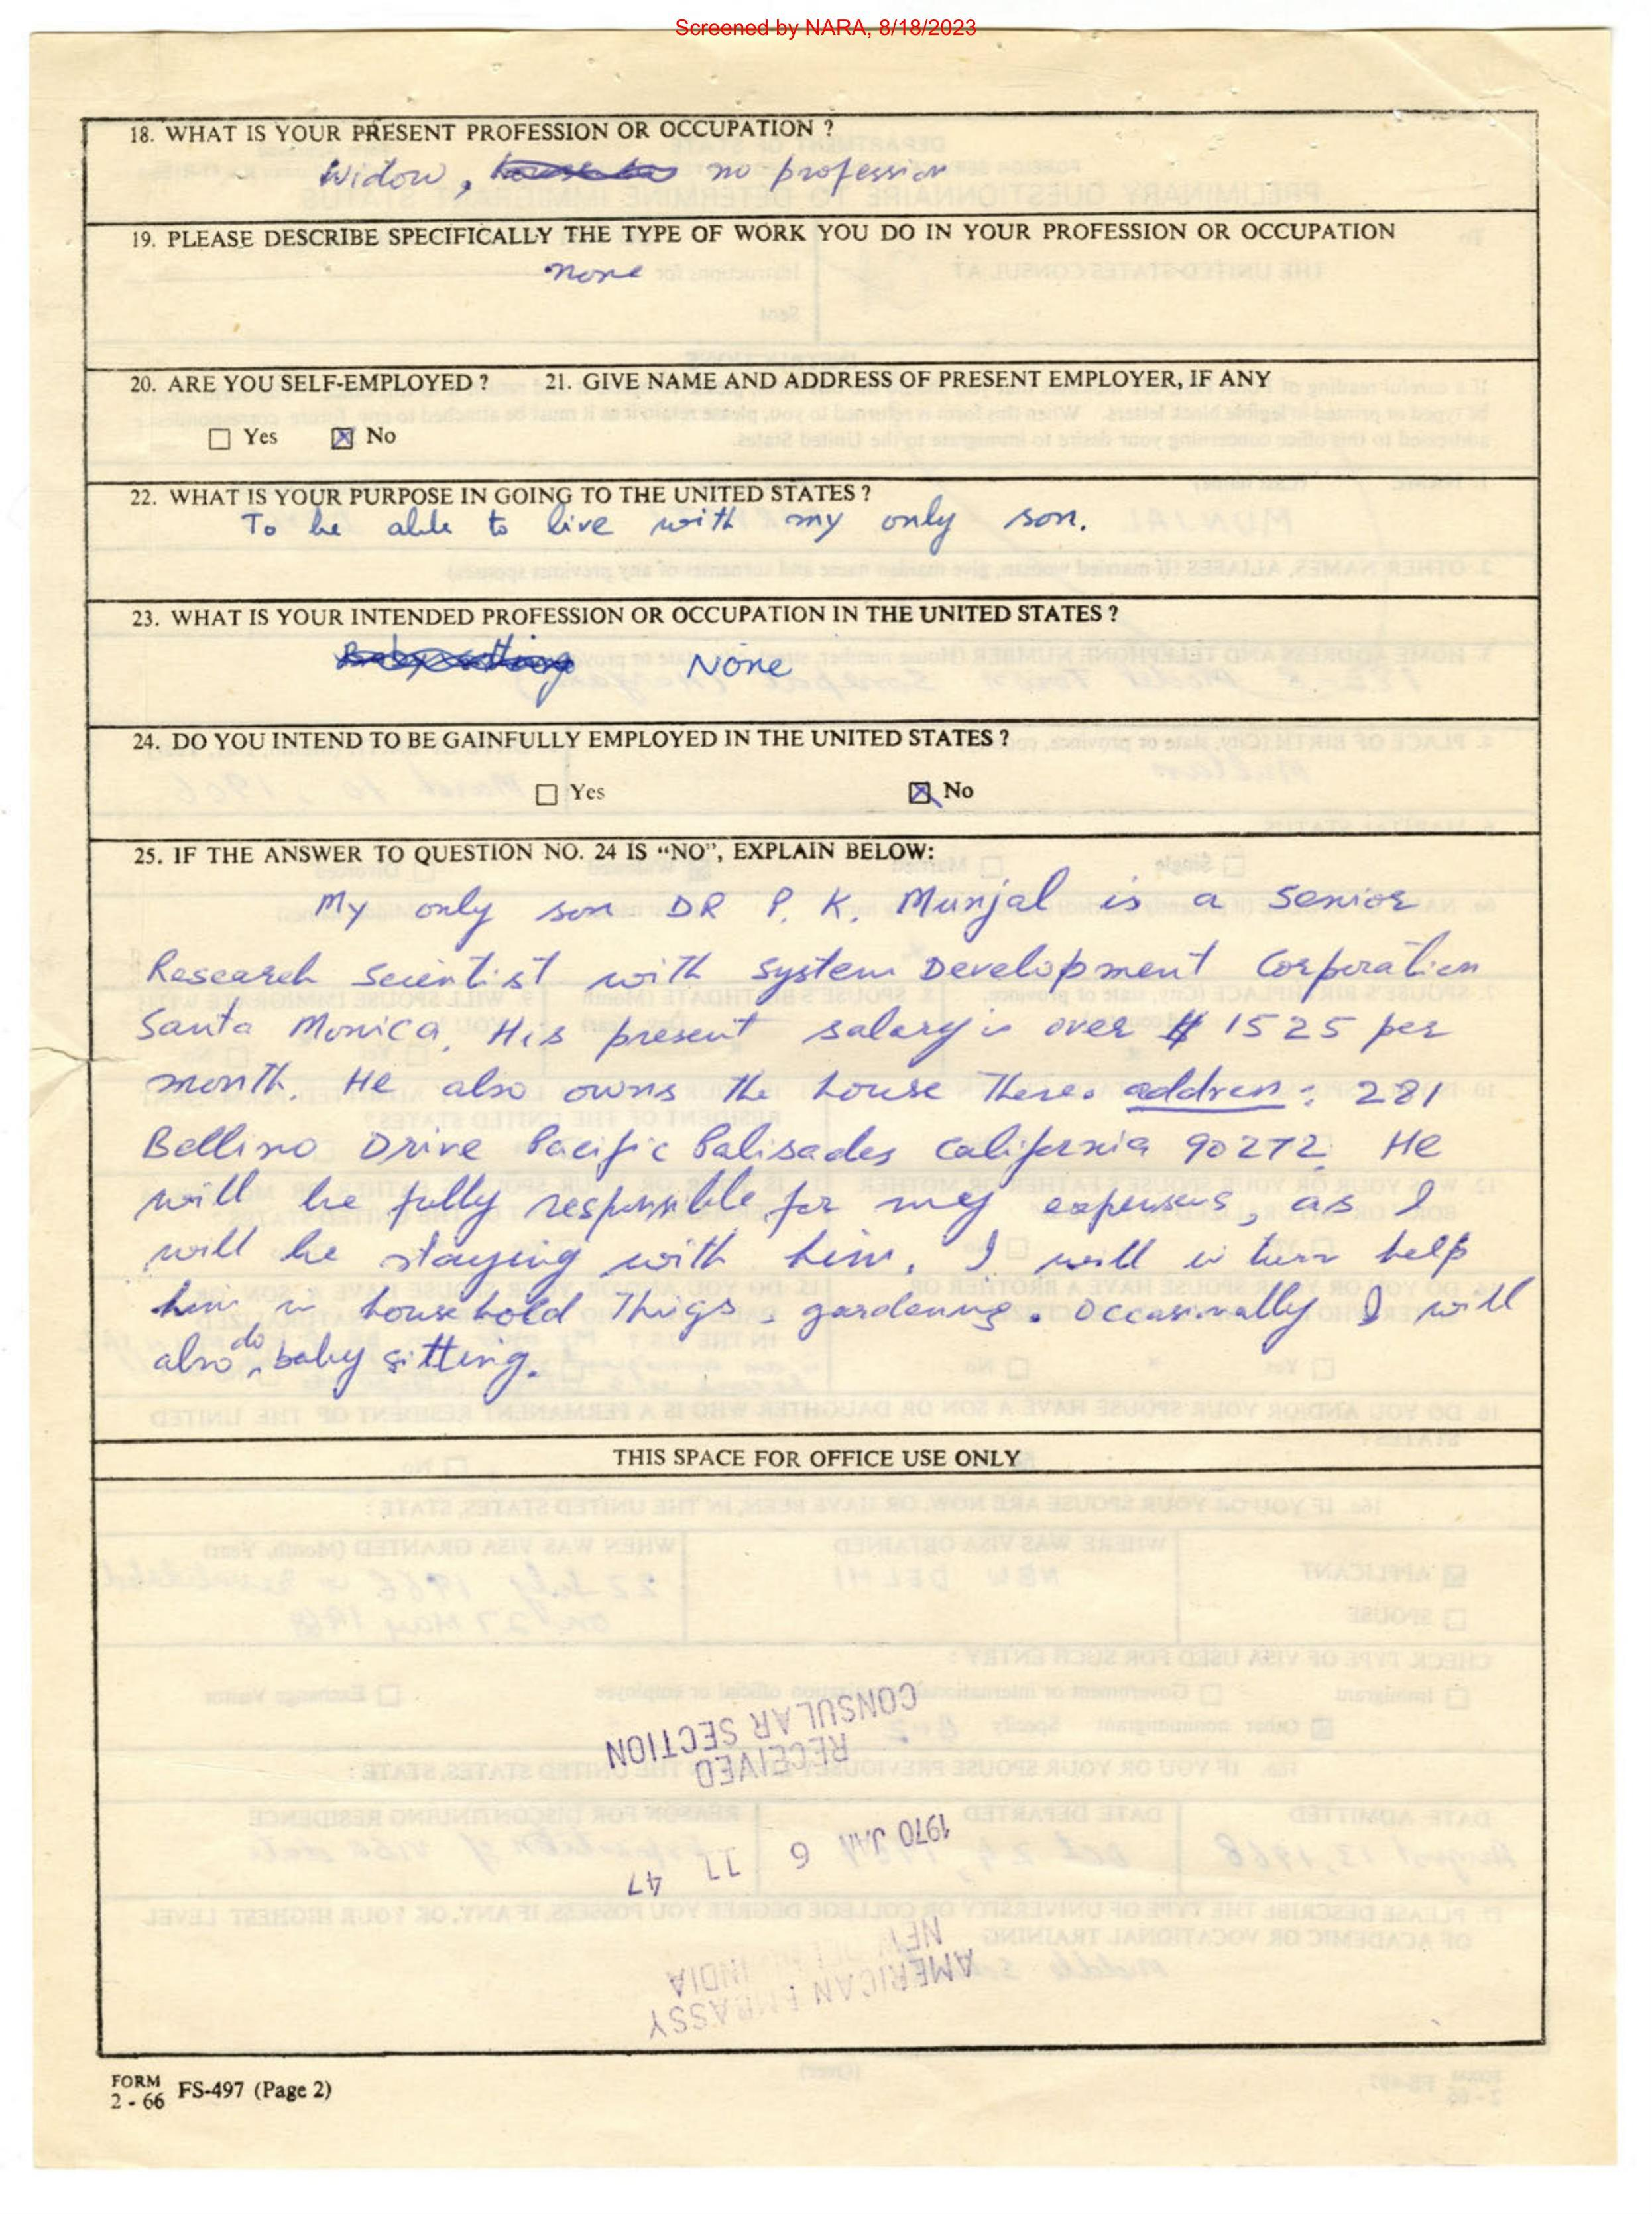 Screened by NARA, 8/18/2023
18. WHAT IS YOUR PRESENT PROFESSION OR OCCUPATION ?
Widow, no profession
19. PLEASE DESCRIBE SPECIFICALLY THE TYPE OF WORK YOU DO IN YOUR PROFESSION OR OCCUPATION
none
20. ARE YOU SELF-EMPLOYED ? 21. GIVE NAME AND ADDRESS OF PRESENT EMPLOYER, IF ANY
Yes No
22. WHAT IS YOUR PURPOSE IN GOING TO THE UNITED STATES ?
To be able to live with my only son.
23. WHAT IS YOUR INTENDED PROFESSION OR OCCUPATION IN THE UNITED STATES ?
Baby sitting None
24. DO YOU INTEND TO BE GAINFULLY EMPLOYED IN THE UNITED STATES ?
Yes No
25. IF THE ANSWER TO QUESTION NO. 24 IS “NO”, EXPLAIN BELOW:
My only son DR P. K. Munjal is a Senior
Research Scientist with System Development Corporation
Santa Monica. His present salary is over $ 1525 per
month. He also owns the house there. address: 281
Bellino Drive Pacific Palisades California 90272. He
will be fully responsible for my expenses, as I
will be staying with him. I will in turn help
him in household things, gardening. Occasionally I will
also do baby sitting.
THIS SPACE FOR OFFICE USE ONLY
CONSULAR SECTION
RECEIVED
1970 JAN 6 11 47
NEW DELHI INDIA
AMERICAN EMBASSY
FORM
2 - 66 FS-497 (Page 2)